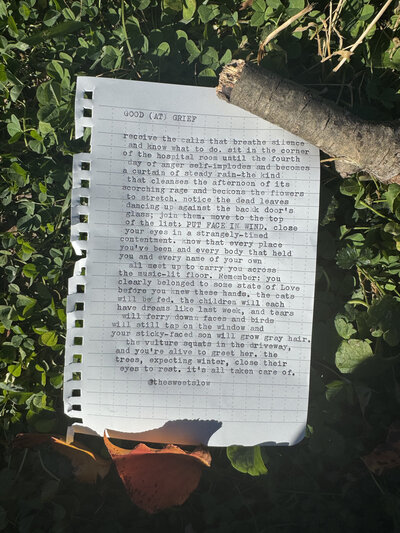 GOOD (AT) GRIEF
receive the calls that breathe silence
and know what to do. sit in the corner
of the hospital room until the fourth
day of anger self-implodes and becomes
a curtain of steady rain—the kind
that cleanses the afternoon of its
scorching rage and beckons the flowers
to stretch. notice the dead leaves
dancing up against the back door's
glass; join them. move to the top
of the list: PUT FACE IN WIND. close
your eyes in a strangely-timed
contentment. know that every place
you've been and every body that held
you and every name of your own
all meet up to carry you across
the music-lit floor. Remember: you
clearly belonged to some state of Love
before you knew these hands. the cats
will be fed. the children will each
have dreams like last week, and tears
will ferry down faces and birds
will still tap on the window and
your sticky-faced son will grow gray hair.
the vulture squats in the driveway,
and you're alive to greet her. the
trees, expecting winter, close their
eyes to rest. it's all taken care of.
@thesweetslow